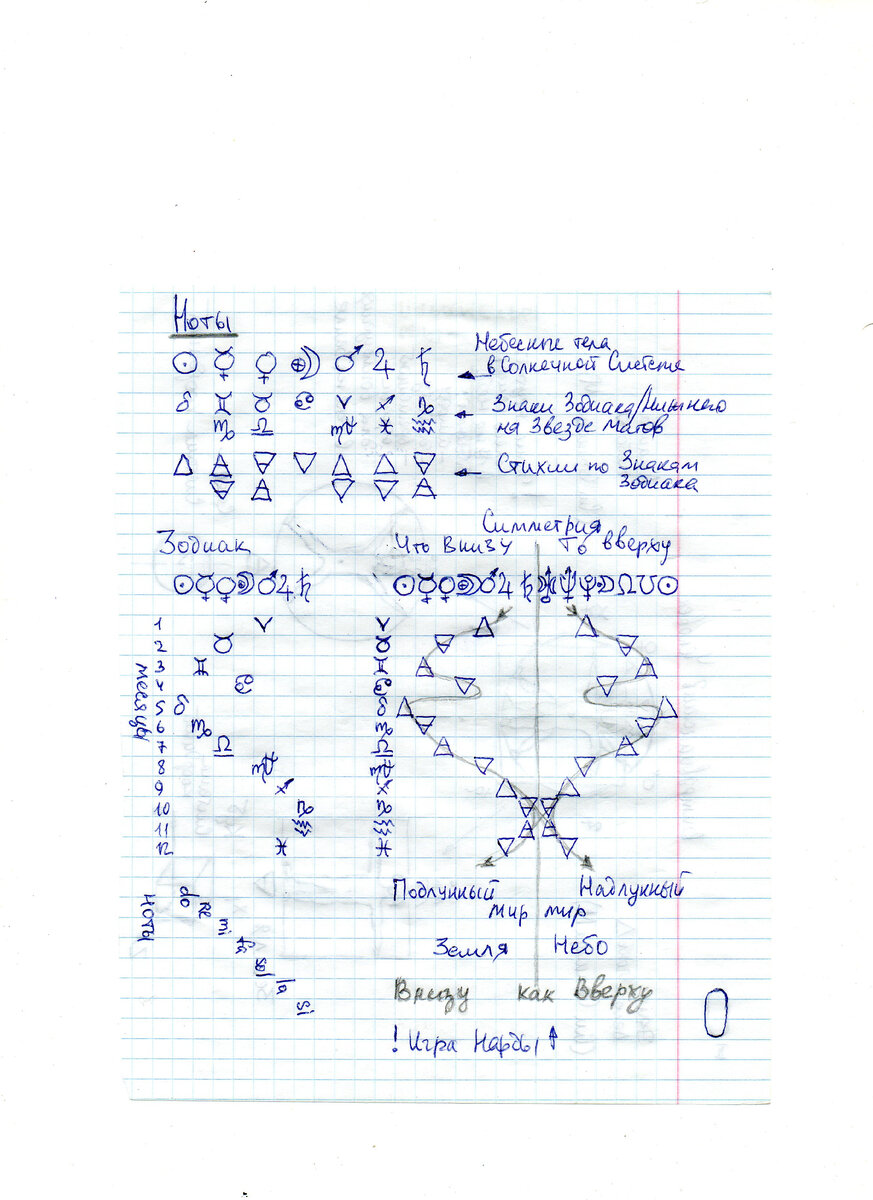 Ноты
☉ ☿ ♀ ⊕☽ ♂ ♃ ♄
Небесные тела
в Солнечной Системе
♌ ♊ ♉ ♋ ♈ ♐ ♑
♍ ♎ ♏ ♓ ♒
Знаки Зодиака/
на Звезде Магов
Стихии по Знакам
Зодиака
Симметрия
Зодиак
Что Внизу То вверху
☉☿♀☽♂♃♄
1 ♈ ♈
2 ♉ ♉
3 ♊ ♊
4 ♋ ♋
5 ♌ ♌
6 ♍ ♍
7 ♎ ♎
8 ♏ ♏
9 ♐ ♐
10 ♑ ♑
11 ♒ ♒
12 ♓ ♓
месяцы
Подлунный Надлунный
мир мир
Земля Небо
Внизу как Вверху
! Игра Нарды ↑
Ноты
do
Re
mi
fa
sol
la
si
0